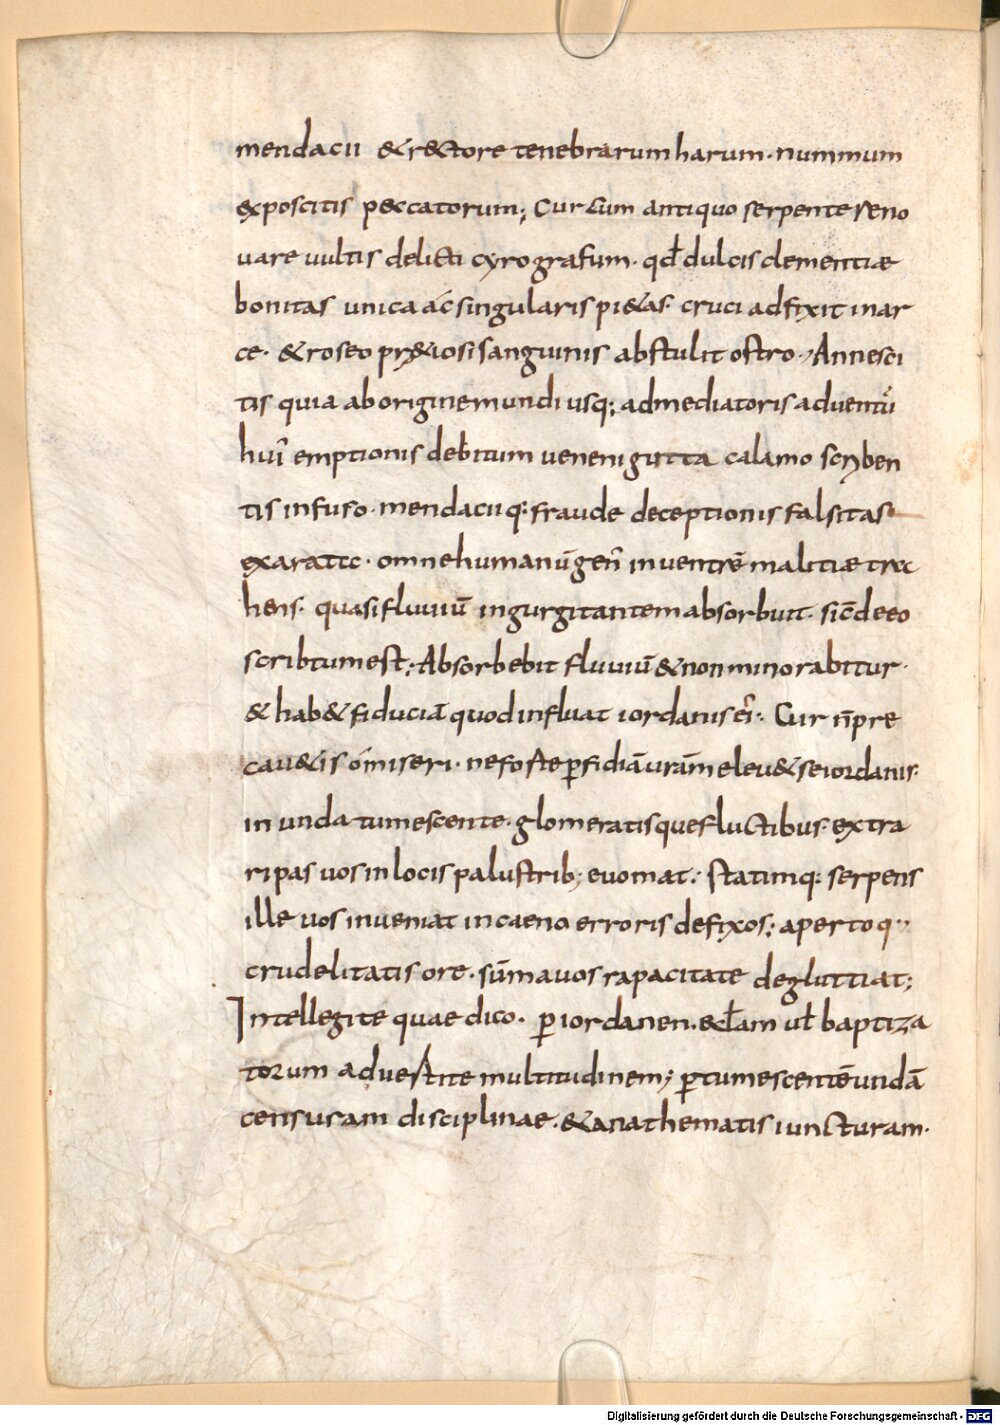 mendacii & r&ctore tenebrarum harum · nummum
exposcitis peccatorum; Cur cum antiquo serpente reno
uare uultis delicti cyrografum · qđ dulcis clementiae
bonitas unica ac singularis pi&as · cruci adfixit in ar
ce · & roseo pr&iosi sanguinis abstulit ostro · An nesci
tis quia ab origine mundi usq; ad mediatoris aduentū
hui' emptionis debitum ueneni gutta calamo scriben
tis infuso · mendaciiq: fraude deceptionis falsitas
exarauit · omne humanū gen' in uentrē malitiae tra
hens · quasi fluuiū ingurgitantem absorbuit · sic̄ de eo
scribtum est; Absorbebit fluuiū & non minorabitur ·
& hab& fiduciā quod influat iordanis ei' · Cur n̄ pre
cau&is o miseri · ne foste ꝑfidiā urām eleu& se iordanis ·
in unda tumescente · glomeratisque fluctibus · extra
ripas uos in locis palustrib; euomat · statimq: serpens
ille uos inueniat in caeno erroris defixos; apertoq·,
crudelitatis ore · sūma uos rapacitate degluttiat;
Intellegite quae dico · ꝑ iordanen · eccłam uł baptiza
torum aduertite multitudinem; ꝑ tumescentē undā
censuram disciplinae · & anathematis iuncturam ·